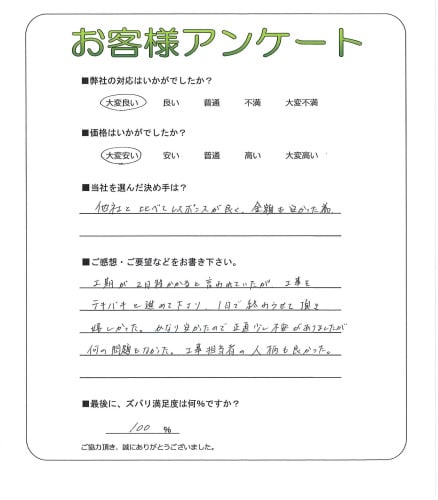 お客様アンケート
■弊社の対応はいかがでしたか?
大変良い 良い 普通 不満 大変不満
■価格はいかがでしたか?
大変安い 安い 普通 高い 大変高い
■当社を選んだ決め手は?
他社と比べてレスポンスが良く、金額も安かった為、
■ご感想・ご要望などをお書き下さい。
工期が2日程かかると言われていたが、工事を
テキパキと進めて下さり、1日で終わらせて頂き
嬉しかった。かなり安かったので正直少し不安がありましたが
何の問題もなかった。工事担当者の人柄も良かった。
■最後に、ズバリ満足度は何%ですか?
100 %
ご協力頂き、誠にありがとうございました。